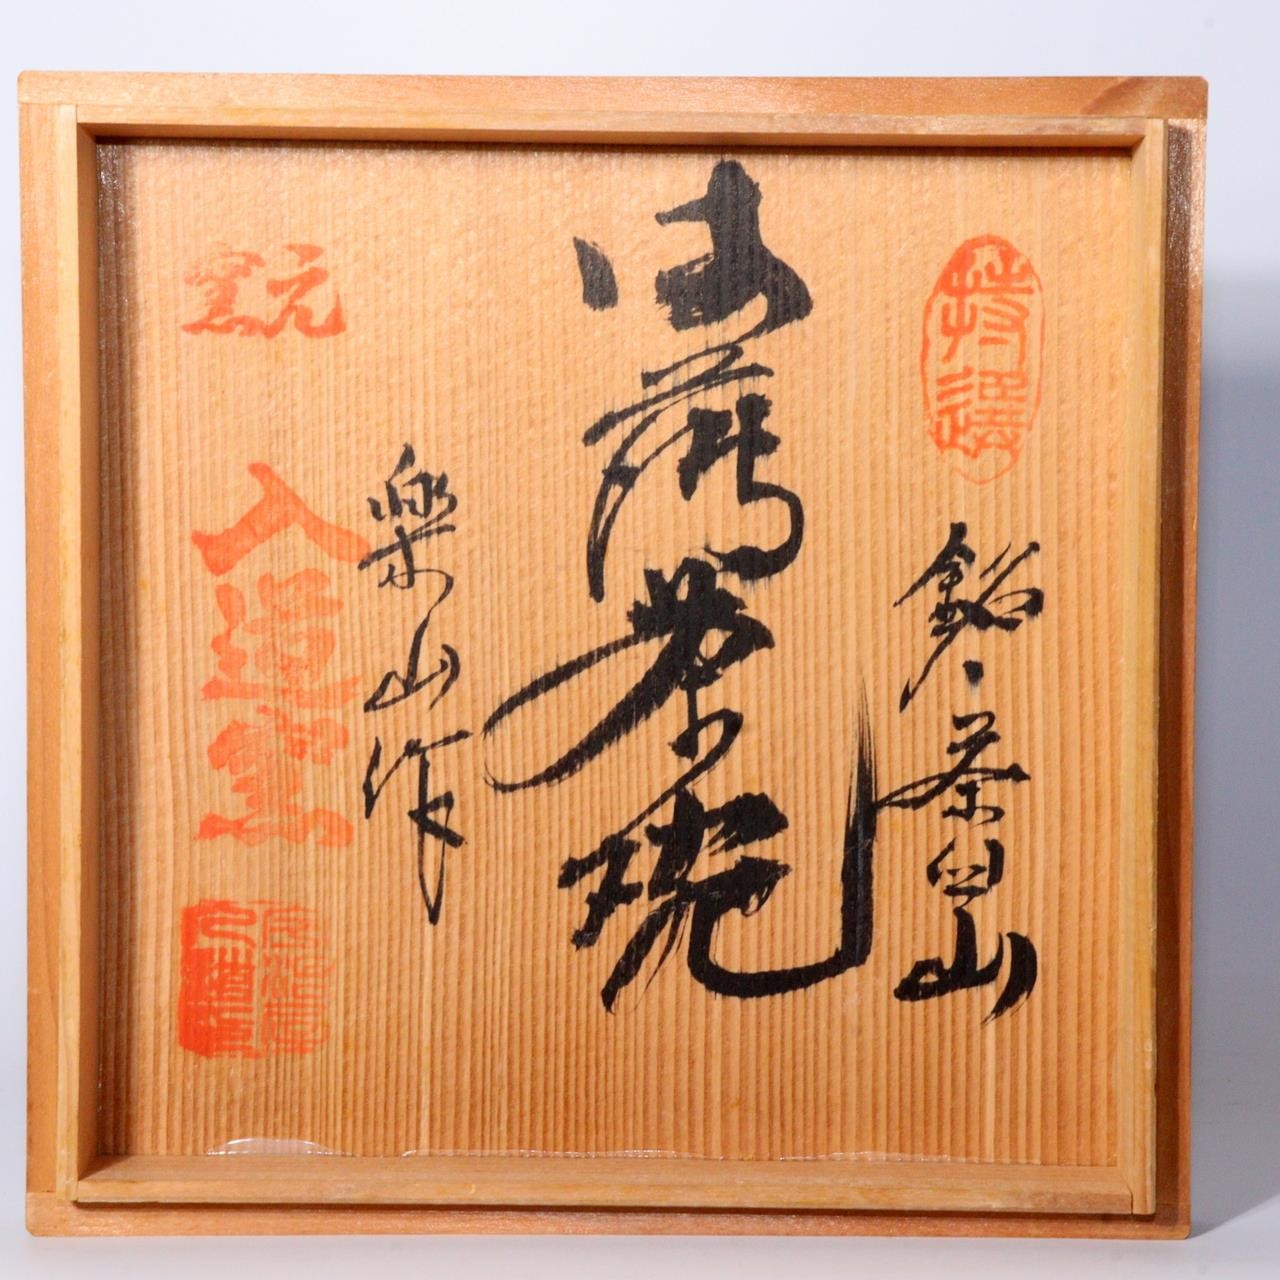 特選
銘、茶臼山
御薄茶碗
楽山作
窯元
入道窯